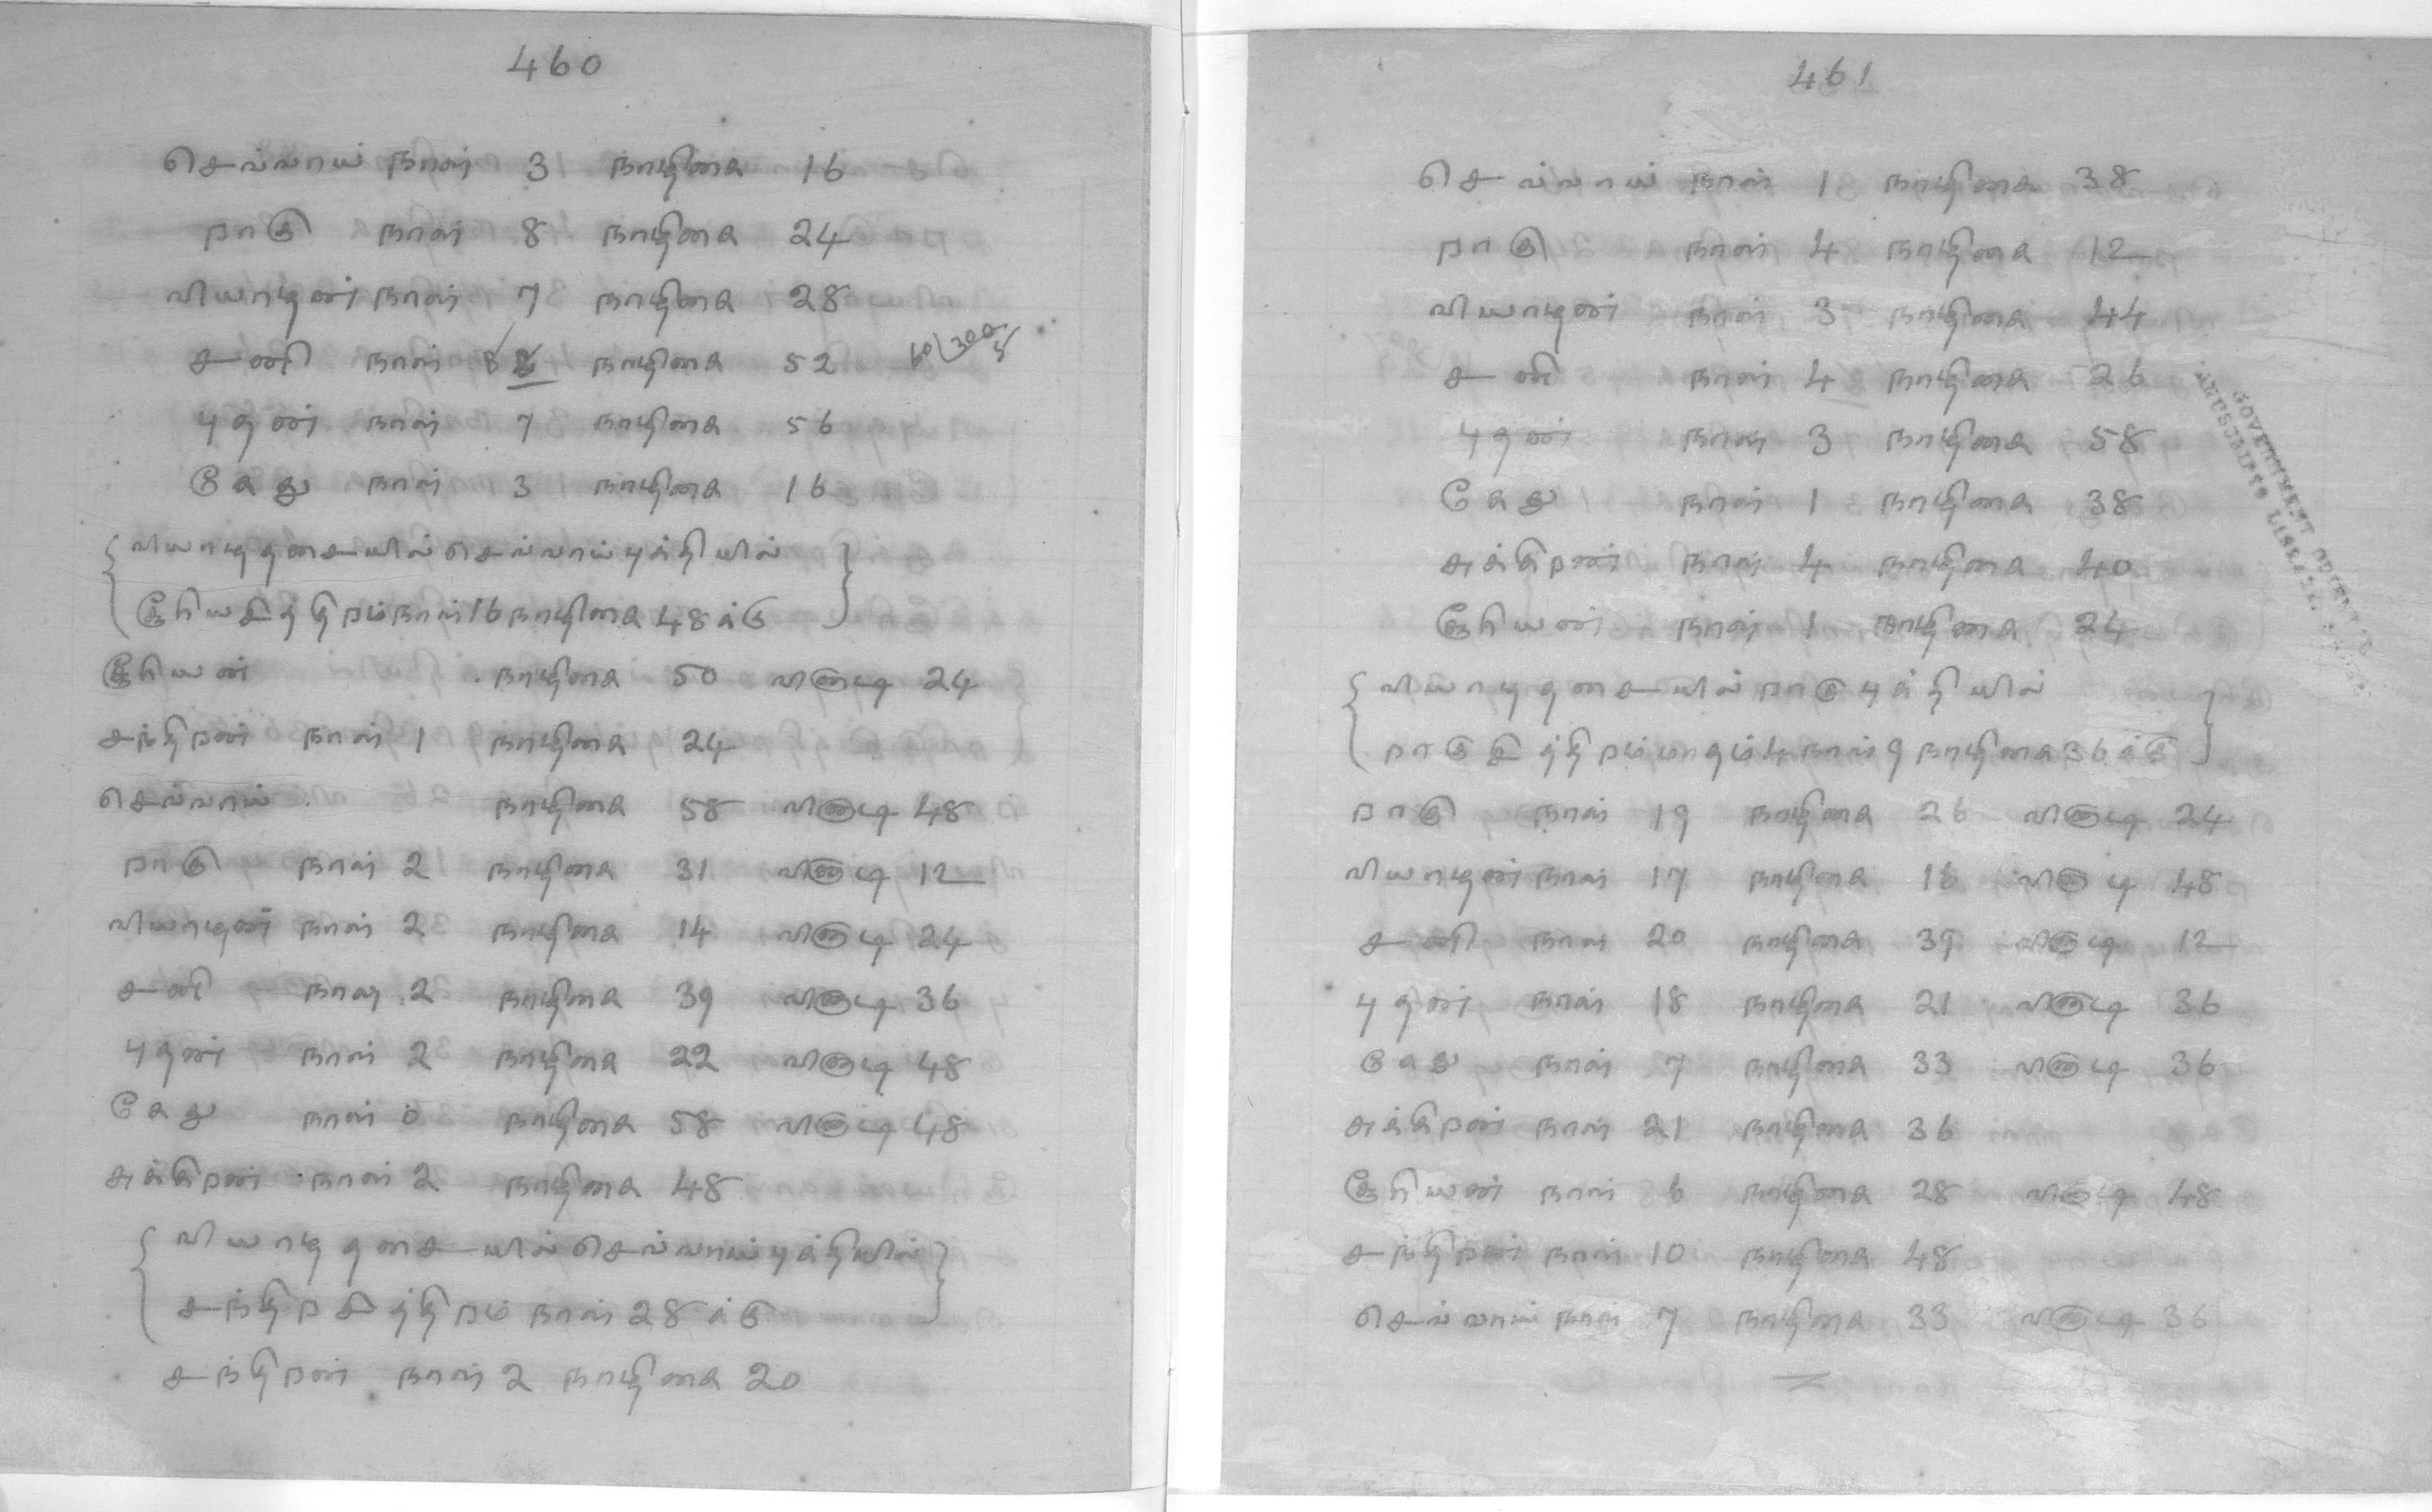 460
செவ்வாய் நாள் 3 நாழிகை 16
ராகு நாள் 8 நாழிகை 24
வியாழன் நாள் 7 நாழிகை 28
சனி நாள் 8 நாழிகை 52 60 300 5
புதன் நாள் 7 நாழிகை 56
கேது நாள் 3 நாழிகை 16
வியாழதசையில் செவ்வாய் புத்தியில்
சூரியசித்திரம் நாள் 16 நாழிகை 48 க்கு
சூரியன் நாழிகை 50 வினாடி 24
சந்திரன் நாள் 1 நாழிகை 24
செவ்வாய் நாழிகை 58 வினாடி 48
ராகு நாள் 2 நாழிகை 31 வினாடி 12
வியாழன் நாள் 2 நாழிகை 14 வினாடி 24
சனி நாள் 2 நாழிகை 39 வினாடி 36
புதன் நாள் 2 நாழிகை 22 வினாடி 48
கேது நாள் 0 நாழிகை 58 வினாடி 48
சுக்கிரன் நாள் 2 நாழிகை 48
வியாழ தசையில் செவ்வாய் புத்தியில்
சந்திர சித்திரம் நாள் 28 க்கு
சந்திரன் நாள் 2 நாழிகை 20
461
செவ்வாய் நாள் 1 நாழிகை 38
ராகு நாள் 4 நாழிகை 12
வியாழன் நாள் 3 நாழிகை 44
சனி நாள் 4 நாழிகை 26
புதன் நாள் 3 நாழிகை 58
கேது நாள் 1 நாழிகை 38
சுக்கிரன் நாள் 4 நாழிகை 40
சூரியன் நாள் 1 நாழிகை 24
வியாழ தசையில் ராகு புத்தியில்
ராகு சித்திரம் மாதம் 4 நாள் 9 நாழிகை 36 க்கு
ராகு நாள் 19 நாழிகை 26 வினாடி 24
வியாழன் நாள் 17 நாழிகை 16 வினாடி 48
சனி நாள் 20 நாழிகை 39 வினாடி 12
புதன் நாள் 18 நாழிகை 21 வினாடி 36
கேது நாள் 7 நாழிகை 33 வினாடி 36
சுக்கிரன் நாள் 21 நாழிகை 36
சூரியன் நாள் 6 நாழிகை 28 வினாடி 48
சந்திரன் நாள் 10 நாழிகை 48
செவ்வாய் நாள் 7 நாழிகை 33 வினாடி 36
GOVERNMENT ORIENTAL
MANUSCRIPTS LIBRARY,